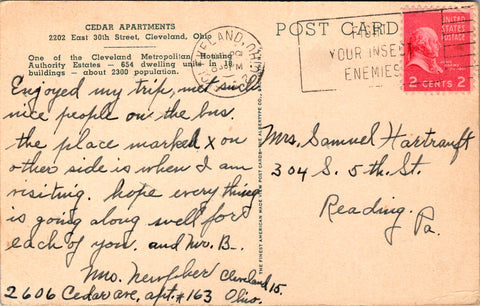 CEDAR APARTMENTS
2202 East 30th Street, Cleveland, Ohio
One of the Cleveland Metropolitan Housing
Authority Estates — 654 dwelling units in 18
buildings — about 2300 population.
Enjoyed my trip, met such
nice people on the bus.
the place marked X on
other side is when I am
visiting. hope every thing
is going along well for
each of you. and Mr. B.
Mrs.
2606 Cedar ave, apt. #163
Cleveland 15
Ohio.
THE FINEST AMERICAN MADE POST CARDS—THE ALBERTYPE CO.,
POST CARD
CLEVELAND, OHIO
PM
FIGHT
YOUR INSECT
ENEMIES
UNITED
STATES
POSTAGE
2 CENTS 2
Mrs. Samuel Hartranft
304 S. 5th St.
Reading.
Pa.